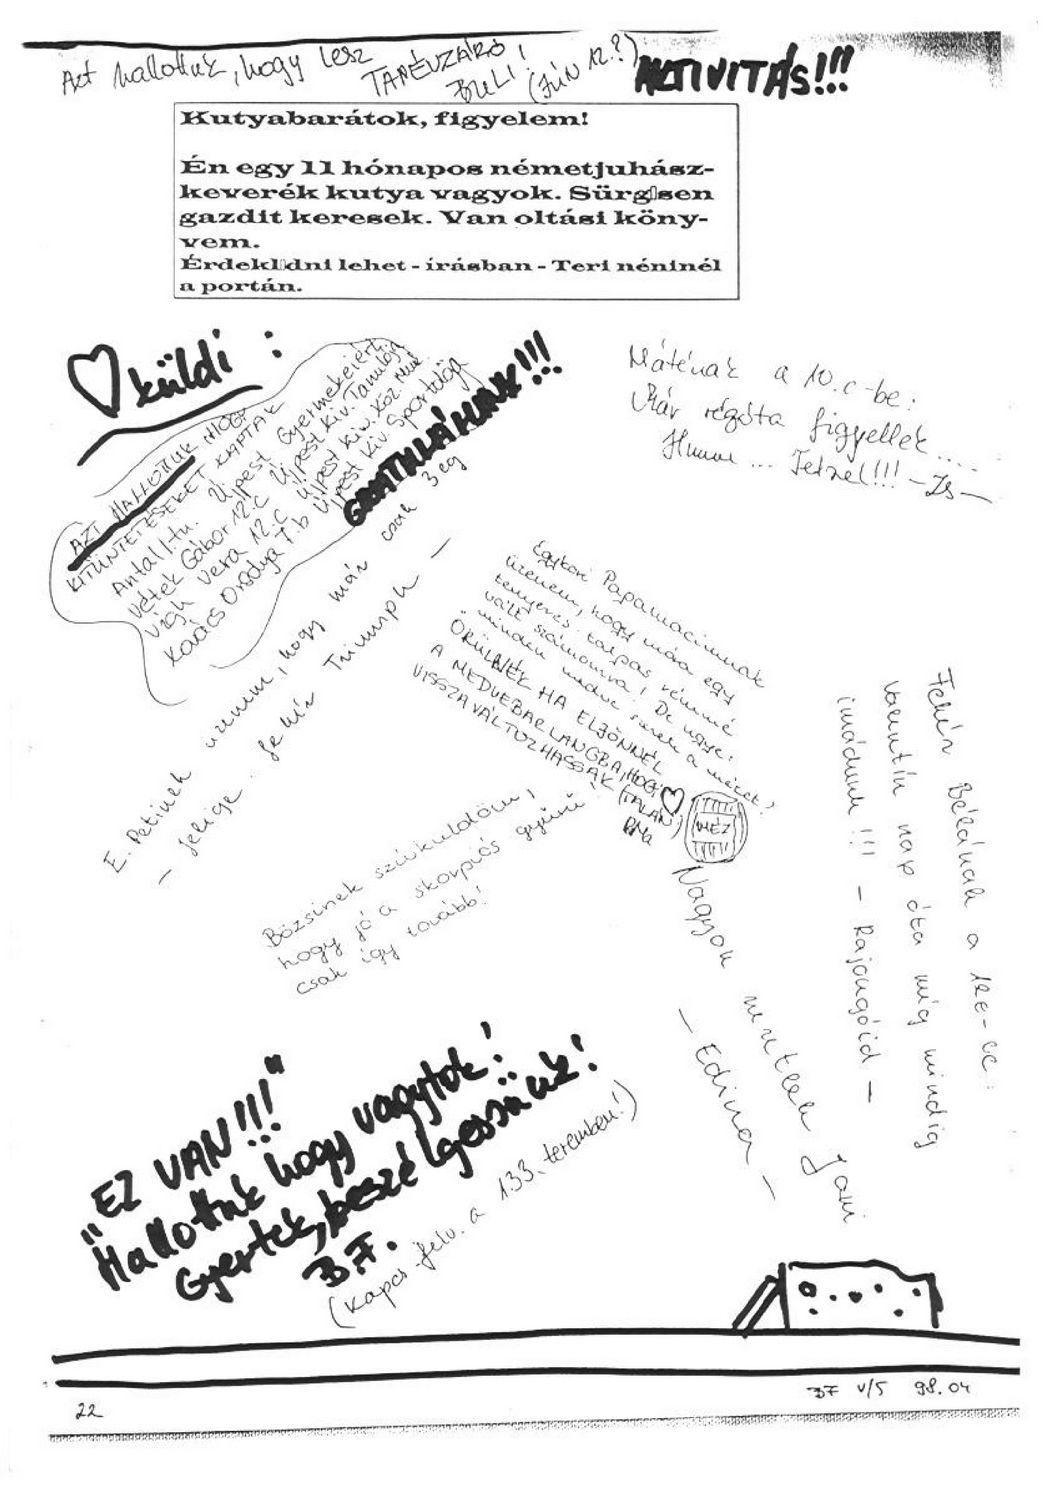 Azt hallottuk, hogy lesz
TANÉVZÁRÓ
BULI!
(Jún 12.?)
AKTIVITÁS!!!
Kutyabarátok, figyelem!
Én egy 11 hónapos németjuhász-
keverék kutya vagyok. Sürg▯sen
gazdit keresek. Van oltási köny-
vem.
Érdekl▯dni lehet - írásban - Teri néninél
a portán.
♡küldi :
AZT HALLOTTUK HOGY
KITÜNTETÉSEKET KAPTAK
Antal I. tu. Újpest Gyermekeiért
Vétek Gábor 12.C Újpest Kiv. Tanulója
Vígh Vera 12.C Újpest Kiv. Köz.
Kovács Orsolya 7.b Újpest Kiv Sportolója
GRATULÁLUNK!!!
Máténak a 10.c-be:
Már régóta figyellek....
Hmmm... Tetzel!!! - Zs -
E. Petinek üzenem, hogy már csak 3 cg
- jelige: fehér Triumph -
Egykori Papamacimnak
üzenem, hogy mára egy
tenyeres talpas rémmé
vált számomra! De ugye:
"minden medve szereti a mézet?
ÖRÜLNÉK HA ELJÖNNÉL
A MEDVEBARLANGBA, HOGY
VISSZAVÁLTOZHASSÁK (TALÁN)
♡
MÉZ
Bözsinek szívküldöm,
hogy jó a skorpiós gyűrű
csak így tovább!
Nagyon szeretlek Jani
- Edina -
Fehér Bélának a 12.c-be:
Valentin nap óta még mindig
imádunk!!! - Rajongóid -
"EZ VAN!!!"
Hallottuk hogy vagytok!
Gyertek, beszélgessünk!
B.F.
(kapcs. felv. a 133. teremben!)
BF V/5 98.04
22